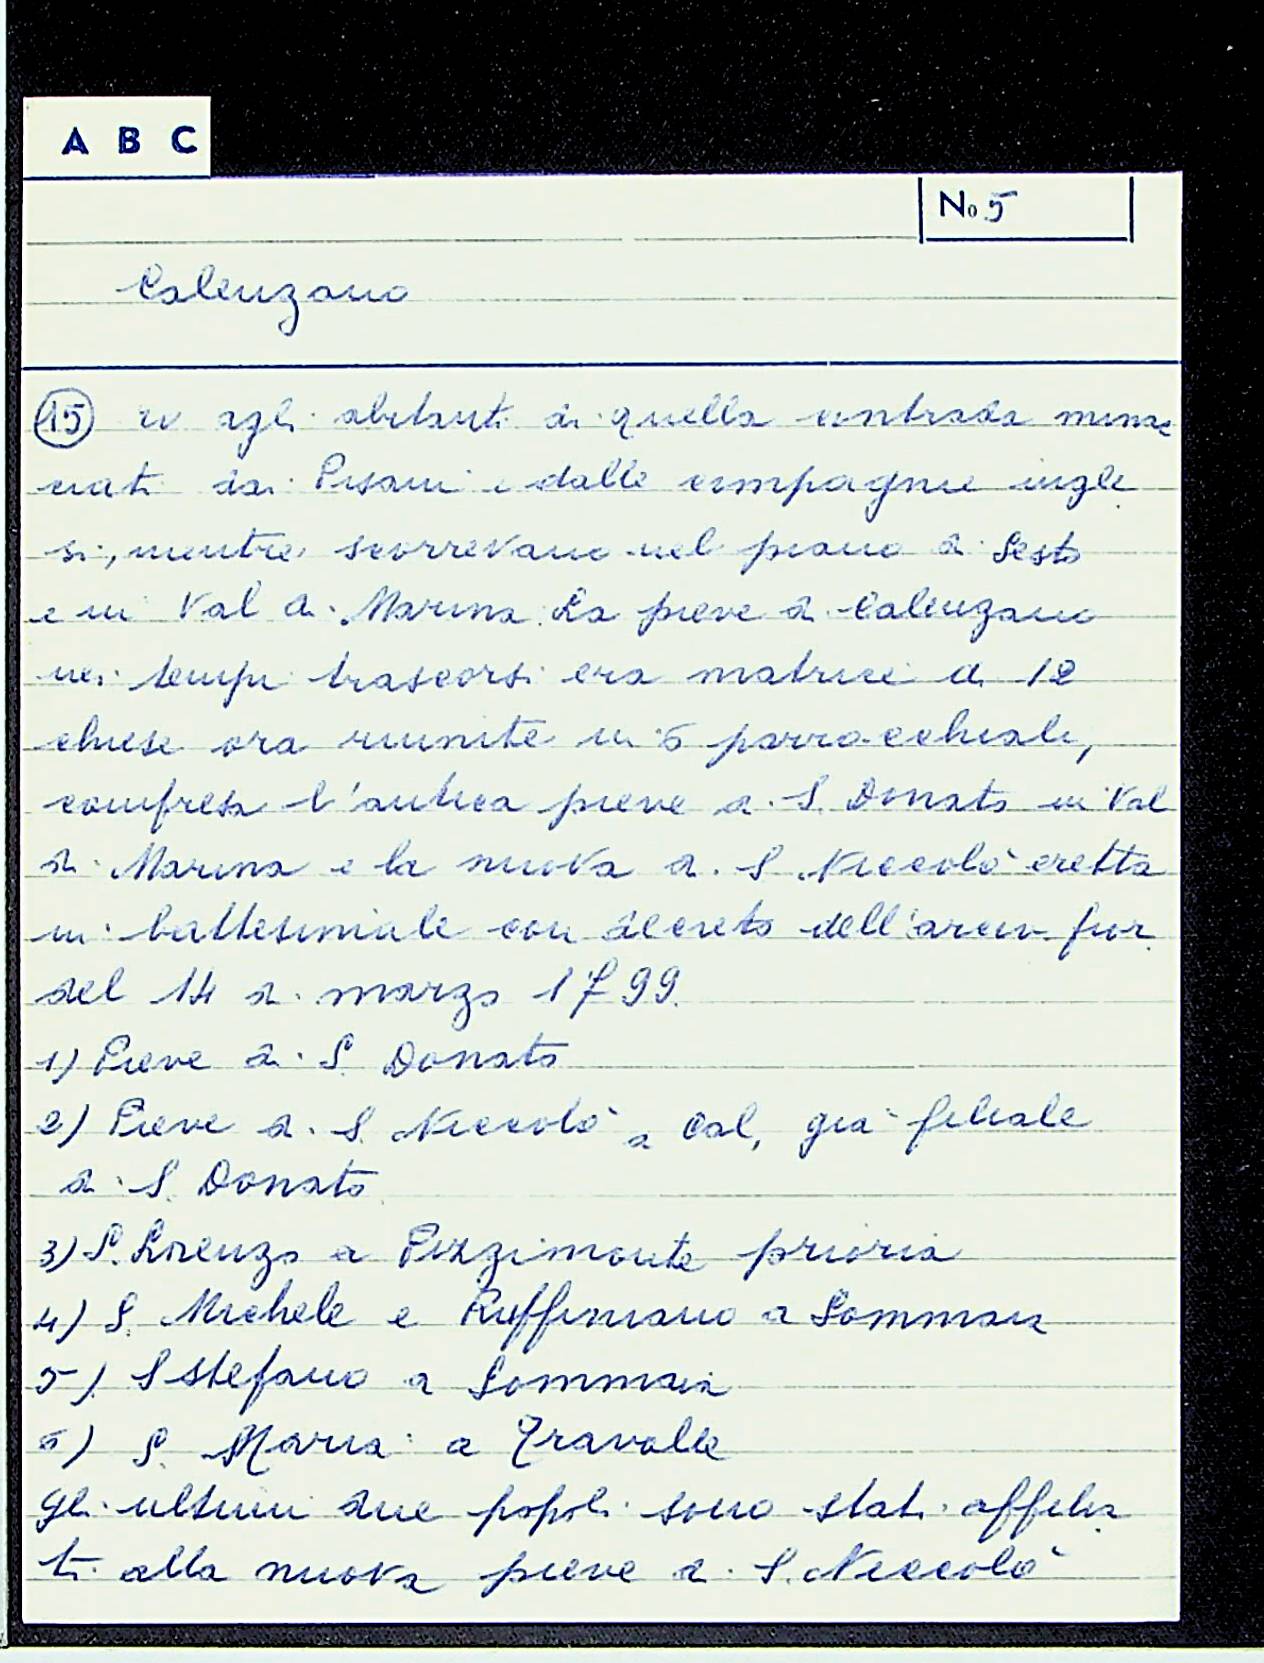 A B C
No 5
Calenzano
15 ro agli abitanti di quella contrada minac
ciati dai Pisani e dalle compagnie ingle
si, mentre scorrevano nel piano di Sesto
e in Val di Marina. La pieve di Calenzano
nei tempi trascorsi era matrice di 12
chiese ora riunite in 6 parrocchiali,
compresa l'antica pieve di S. Donato in Val
di Marina e la nuova di S. Niccolò eretta
in battesimale con decreto dell'arciv. fior.
del 14 di marzo 1799.
1) Pieve di S. Donato
2) Pieve di S. Niccolò a Cal, già filiale
di S. Donato
3) S. Lorenzo a Pizzimonte prioria
4) S. Michele e Ruffiniano a Sommaia
5) S Stefano a Sommaia
6) S. Maria a Travalle
Gli ultimi due popoli sono stati affilia
ti alla nuova pieve di S. Niccolò